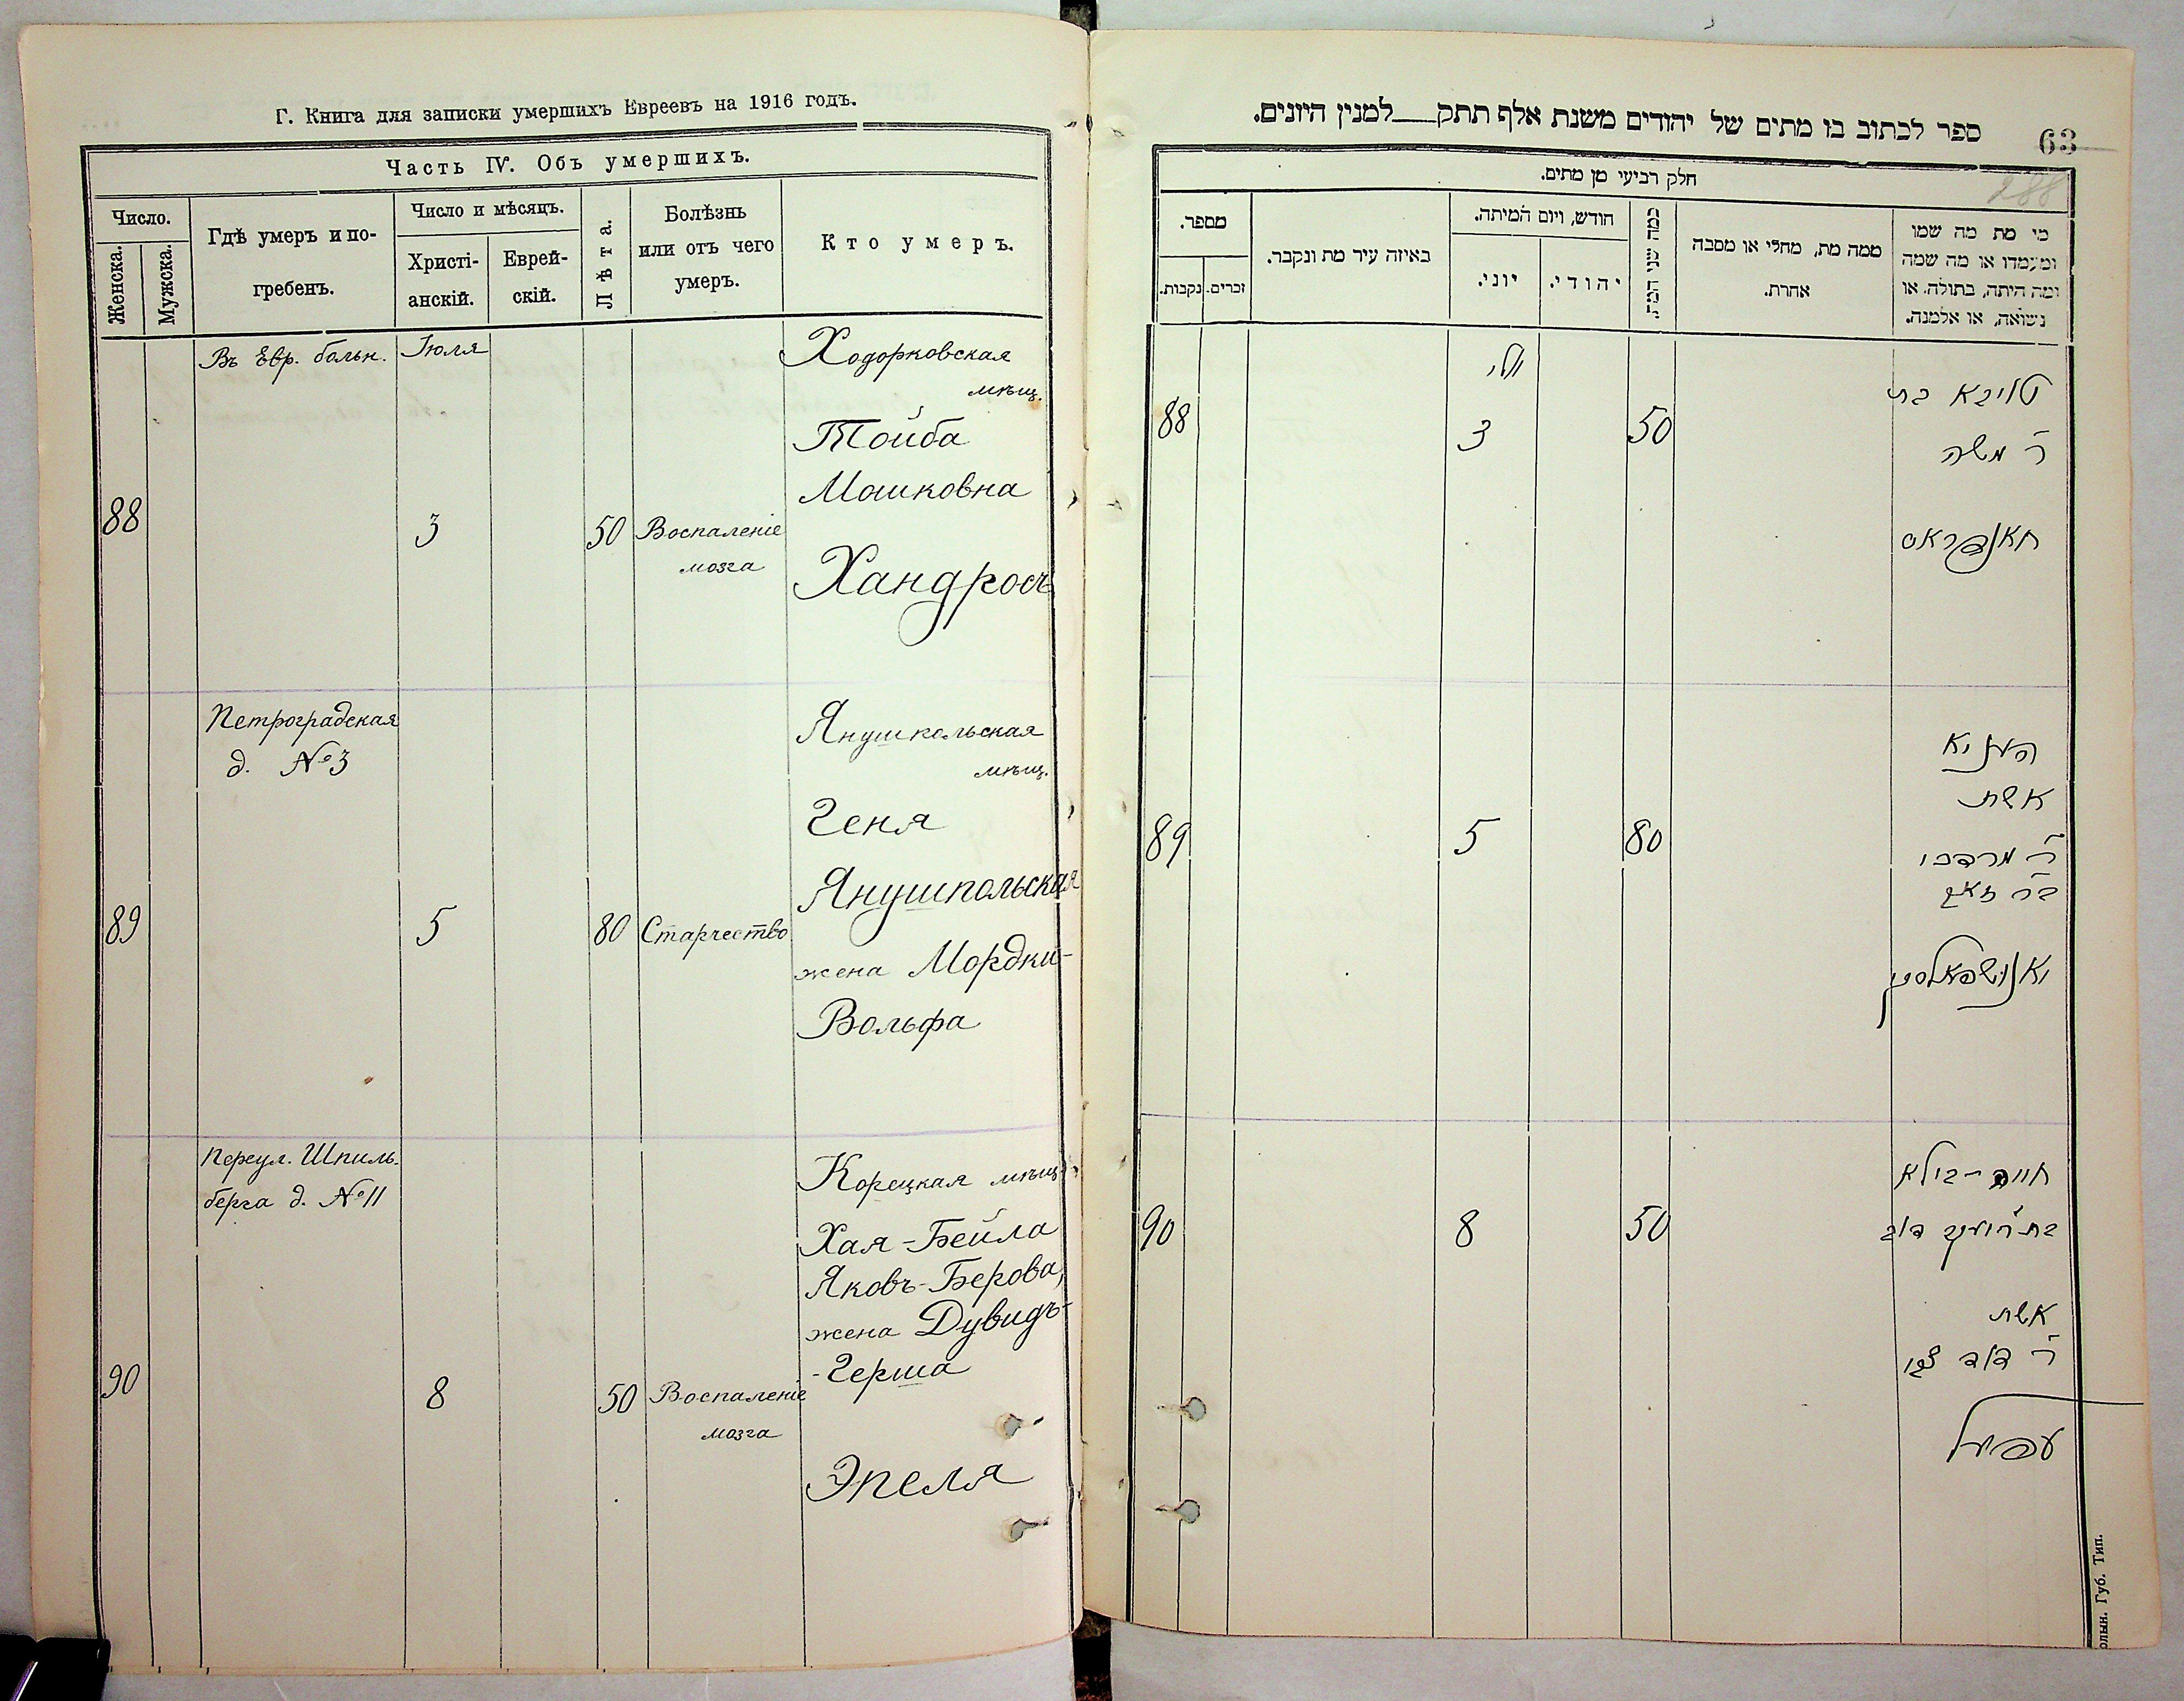 Г. Книга для записки умершихъ Евреевъ на 1916 годъ.
Часть IV. Объ умершихъ.
Число.
Женска.
Мужска.
Гдѣ умеръ и по-
гребенъ.
Число и мѣсяцъ.
Христі-
анскій.
Еврей-
скій.
Лѣта.
Болѣзнь
или отъ чего
умеръ.
Кто умеръ.
88
Въ Евр. больн.
Іюля
3
50
Воспаленіе
мозга
Ходорковская
мѣщ.
Тойба
Мошковна
Хандросъ
89
Петроградская
д. №3
5
80
Старчество
Янушпольская
мѣщ.
Геня
Янушпольская
жена Мордки-
Вольфа
90
Переул. Шпиль-
берга д. №11
8
50
Воспаленіе
мозга
Корецкая мѣщ.
Хая-Бейла
Яковъ-Берова,
жена Дувидъ-
-Герша
Эпеля
ספר לכתוב בו מתים של יהודים משנת אלף תתק__למנין היונים.
63
288
חלק רביעי מן מתים.
מספר.
נקבות.
זכרים.
באיזה עיר מת ונקבר.
חודש, ויום המיתה.
יוני.
יהודי.
כמה שני המת.
ממה מת, מחלי או מסבה
אחרת.
מי מת מה שמו
ומעמדו או מה שמה
ומה היתה, בתולה, או
נשואה, או אלמנה.
88
יולי
3
50
טויבא בת
ר' משה
חאנדראס
89
5
80
העניא
אשת
ר' מרדכי
זאב
יאנושפאלסקי
90
8
50
חיה-ביילא
בת ר' יעקב דוב
אשת
ר' דוד צבי
עפעל
олын. Губ. Тип.